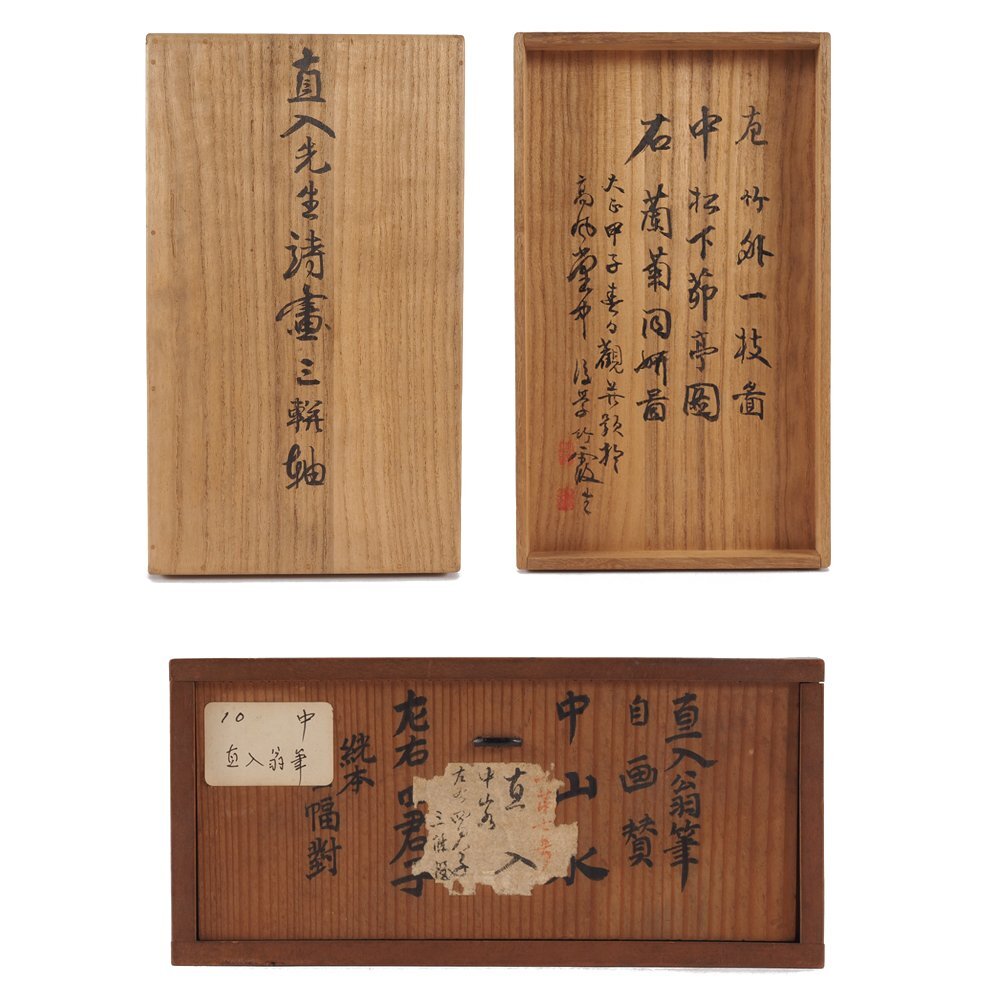 直入先生詩畫三軿軸
左 竹外一枝圖
中 松下茆亭圖
右 蘭菊同妍圖
大正甲子春日觀并題於
高風堂中 後學竹霞
直入翁筆
自画賛
中山水
左右四君子
絖本
幅對
中
10
直入翁筆
直入
中山水
左右四君子
三幅對